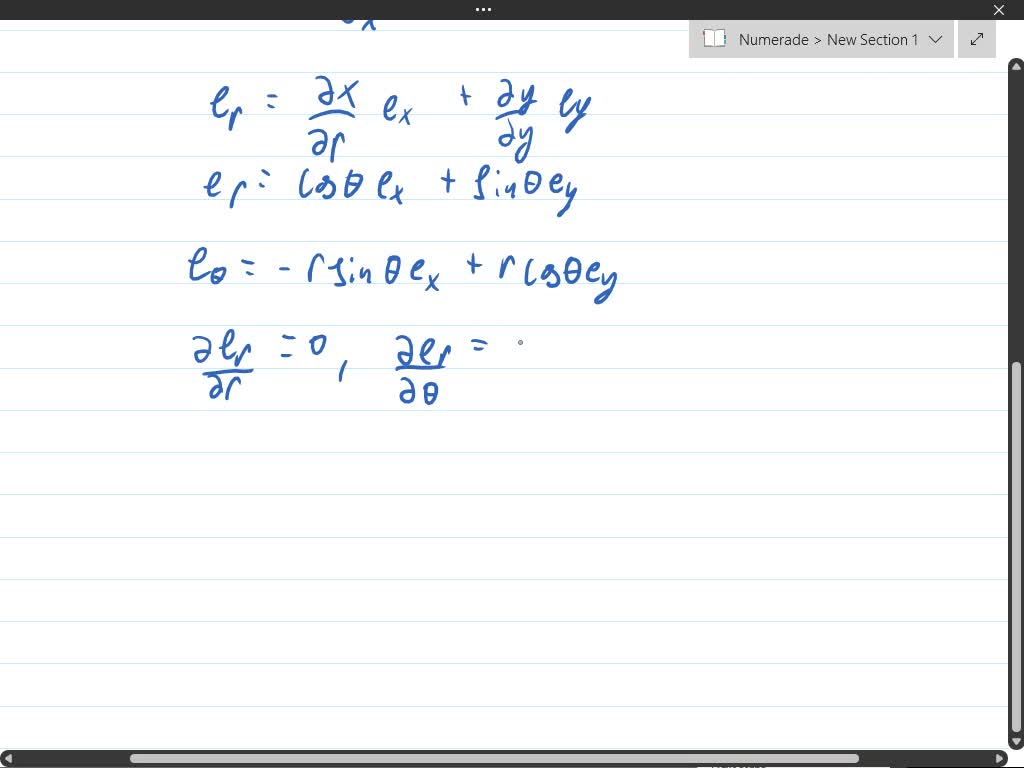 Numerade > New Section 1
e_r = ∂x/∂r e_x + ∂y/∂y e_y
e_r = cosθ e_x + sinθ e_y
e_θ = - r sinθ e_x + r cosθ e_y
∂e_r/∂r = 0, ∂e_r/∂θ =